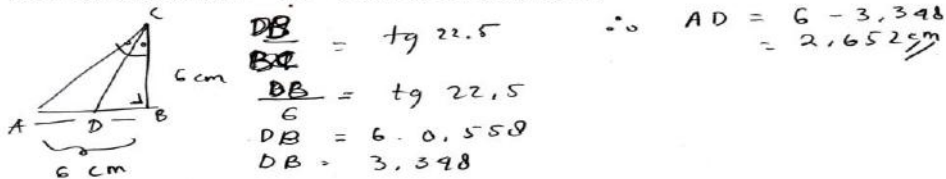 C
6 cm
A D B
6 cm
DB/BC = tg 22.5
DB/6 = tg 22,5
DB = 6 . 0,558
DB = 3,348
∴ AD = 6 - 3,348
= 2,652 cm